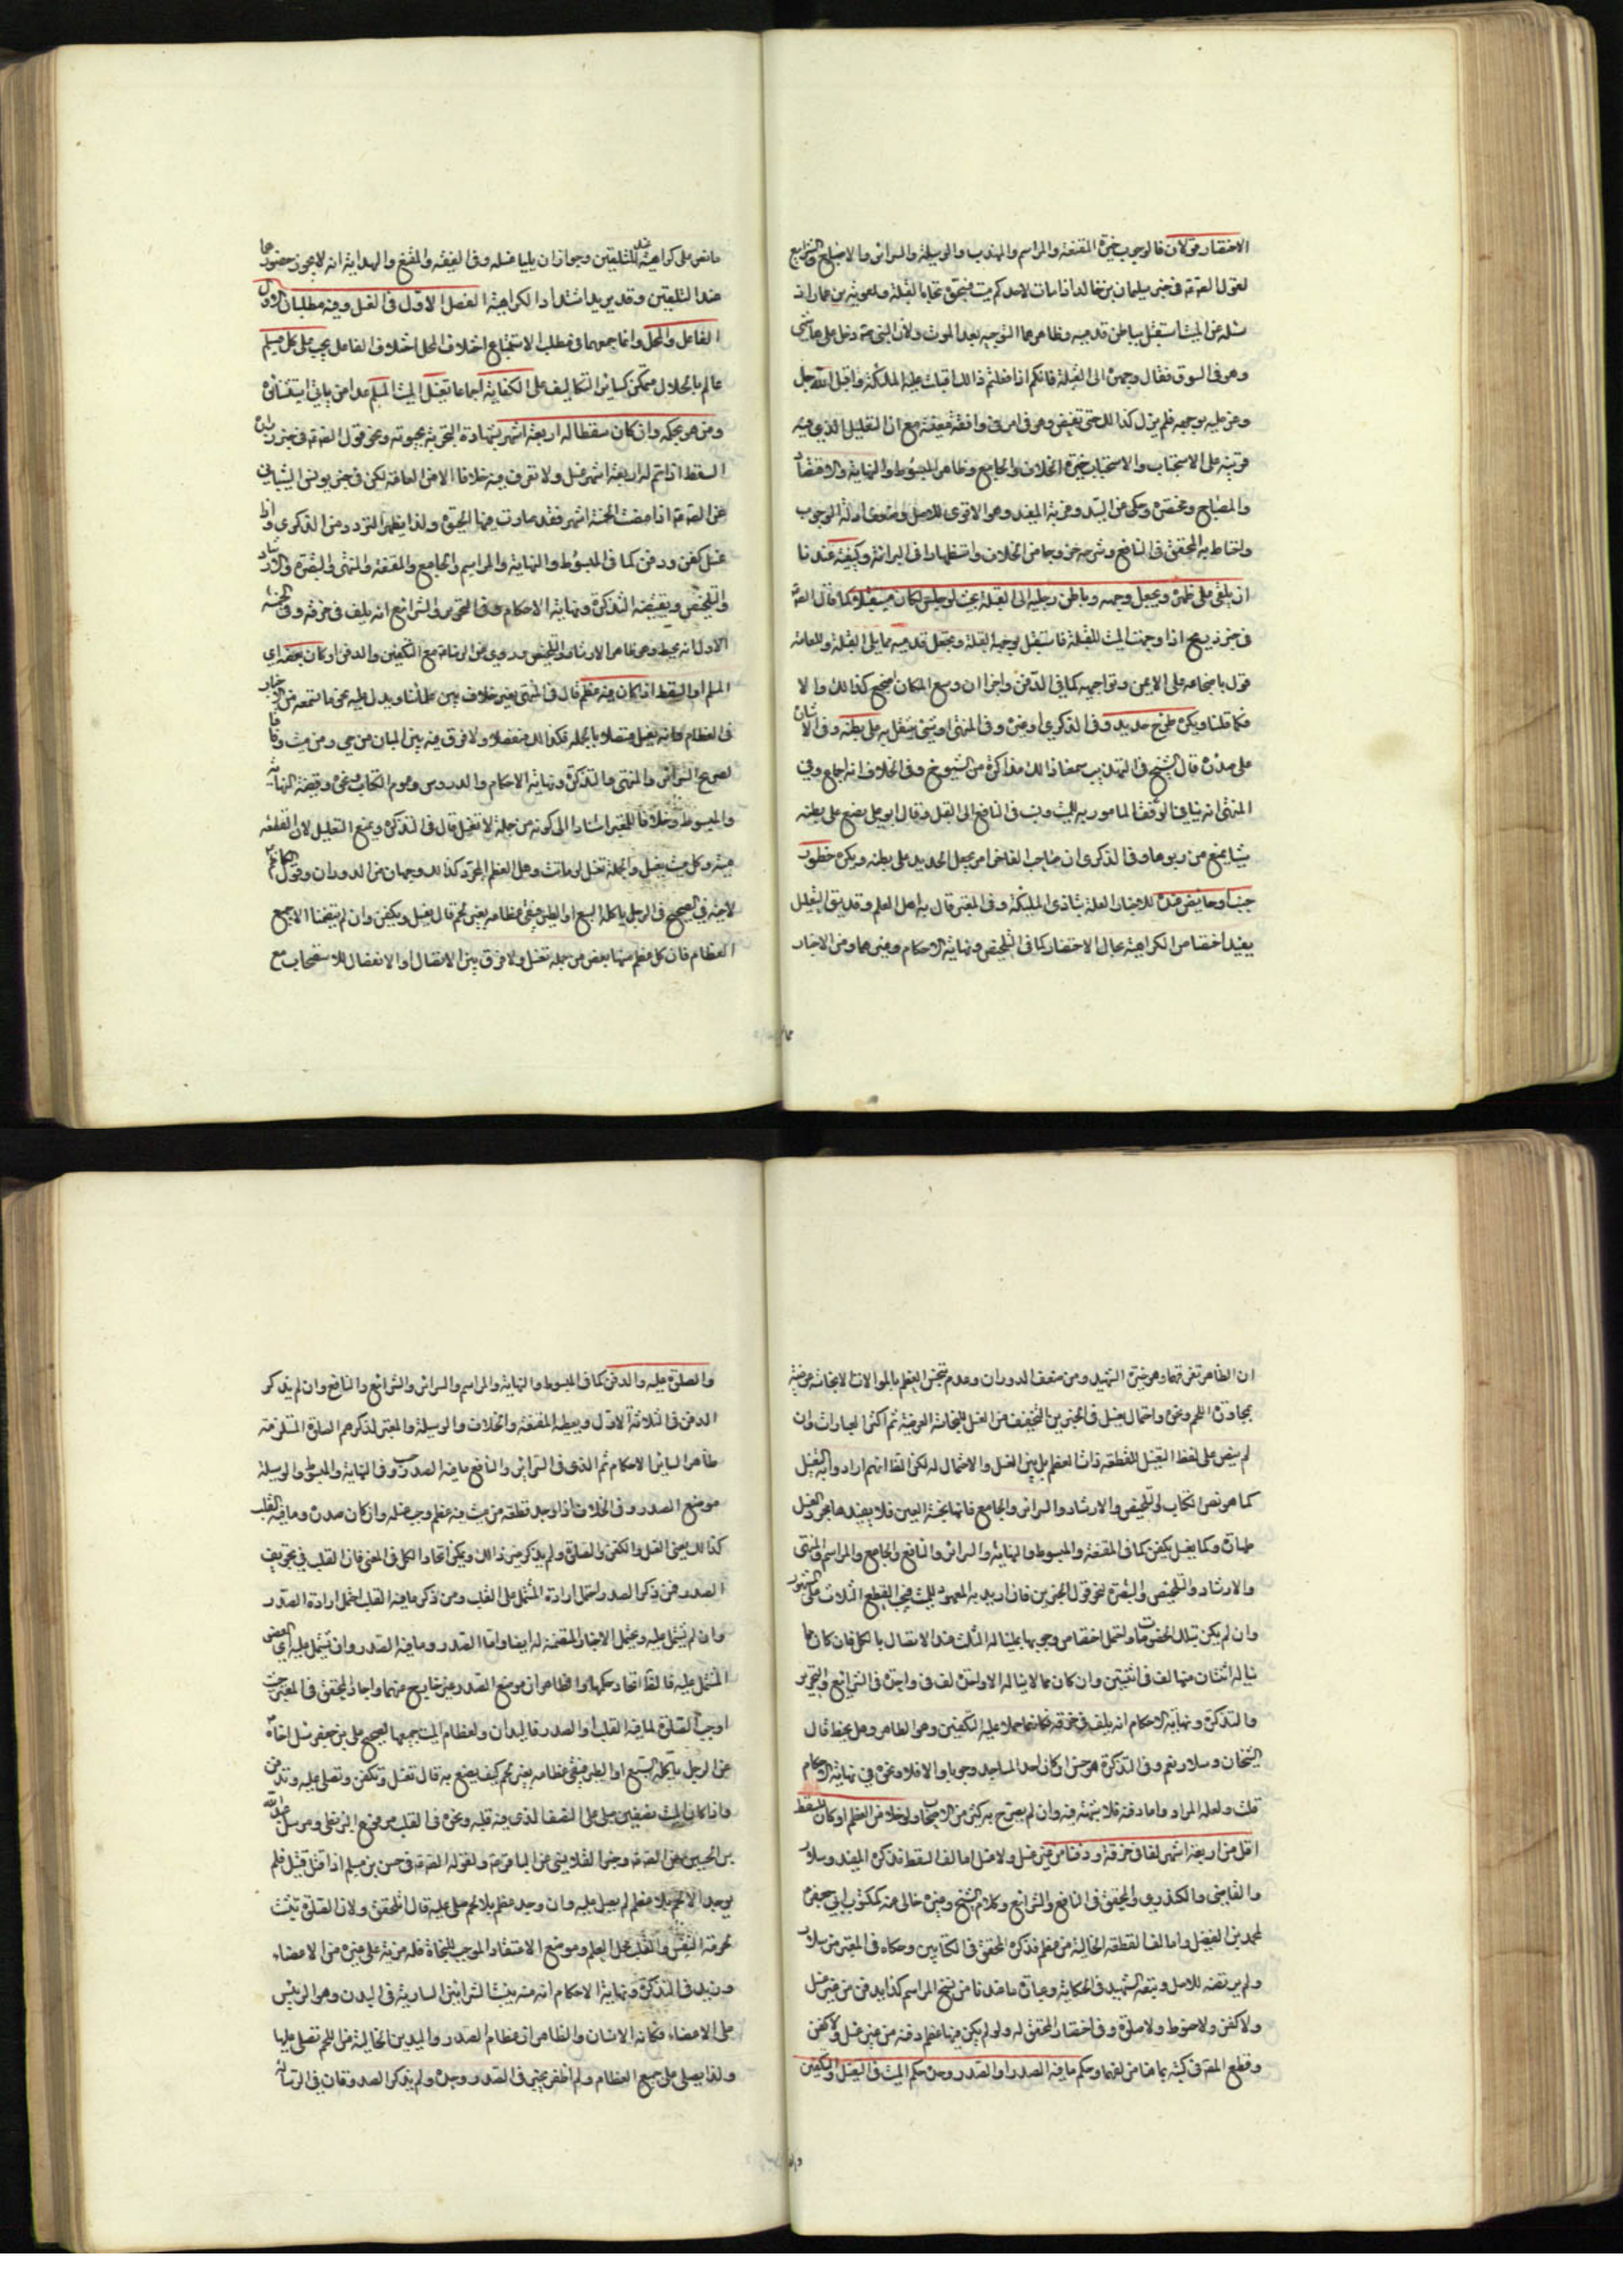 الاحتضار قولان فالوجوب خيرة المقنعة والمراسم والمهذب والوسيلة والسرائر والاصباح والشرايع
لقول الصادق ع في خبر سليمان بن خالد اذا مات لاحدكم ميت فسجوه تجاه القبلة ولمعوية بن عمار اذ
سئله عن الميت استقبل بباطن قدميه وظاهرهما التوجيه بعد الموت ولان النبي ص دخل على هاشمي
وهو في السوق فقال وجهوه الى القبلة فانكم اذا فعلتم ذالك اقبلت عليه الملئكة واقبل الله جل
وعز عليه بوجهه فلم يزل كذالك حتى يقبض وهو في امر في واقعة معينة مع ان التعليل الذي فيه
قرينة على الاستحباب والاستحباب خيرة الخلاف والجامع وظاهر المبسوط والنهاية والاقتصاد
والمصباح ومختصره وحكى عن السيد وعزية المفيد وهو الاقوى للاصل وضعف ادلة الوجوب
واحتاط به المحقق في النافع وشرحه خروجا من الخلاف واستظهارا في البرائة وكيفيته عندنا
ان يلقى على ظهره ويجعل وجهه وباطن رجليه الى القبلة بحيث لو جلس لكان مستقبلا كما قال الصادق
في خبر ذريح اذا وجهت الميت للقبلة فاستقبل بوجهه القبلة ويجعل قدميه مما يلى القبلة وللعامة
قول باضجاعه على الايمن وتواجهه كما في الدفن واخر ان وسع المكان اضجع كذالك والا
فكما قلنا ويكره طرح حديد وفي الذكرى او غيره وفي المنتهى او شيء يثقل به على بطنه وفي
على صدره قال الشيخ في التهذيب سمعنا ذالك مذاكرة من الشيوخ وفي الخلاف انه اجماع وفي
المنتهى انه ينافي الرفق المامور به للميت ونسب في النافع الى القيل وقال ابو على يضع على بطنه
شيئا يمنع من ربوها وفي الذكرى ان صاحب الفاخر امر بجعل الحديد على بطنه ويكره حضور
جنب او حايض عنده للاخبار المعللة بتاذى الملئكة وفي المعتبر قال به اهل العلم وقد يق التعليل
يفيد اختصاص الكراهية بحال الاحتضار كما في التلخيص ونهاية الاحكام وغيرهما ومن الاخبار
ما نص على كراهية عند التلقين وجواز ان يليا غسله وفي الفقيه والمقنع والهداية انه لا يجوز حضورهما
عند التلقين وقد يريد اشتداد الكراهية الفصل الاول في الغسل وفيه مطلبان الاول
الفاعل والمحل وانما جمعهما في مطلب لاستتباع اختلاف المحل اختلاف الفاعل يجب على كل مسلم
عالم بالحال متمكن كساير التكاليف على الكفاية اجماعا تغسيل الميت المسلم عدا من ياتي استثنائه
ومن هو بحكمه وان كان سقطا له اربعة اشهر بشهادة التجربة بحيوته ونحو قول الصادق في خبر زرارة
السقط اذا تم له اربعة اشهر غسل ولا نعرف فيه خلافا الا من العامة لكن في خبر يونس الشيباني
عن الصادق اذا مضت الخمسة اشهر فقد صارت فيها الحيوة ولذا يظهر التردد من الذكرى واذا
غسل كفن ودفن كما في المبسوط والنهاية والمراسم والجامع والمقنعة والمنتهى والتبصرة والارشاد
والتلخيص ويقتضيه التذكرة ونهاية الاحكام وفي التحرير والشرائع انه يلف في خرقة وفي
الاول انه يحيط وهو ظاهر الارشاد والتلخيص وروى عن الرضا ع مع التكفين والدفن او كان بعضه اي
المسلم او السقط اذا كان فيه عظم قال في المنتهى بغير خلاف بين علمائنا ويدل عليه نحو ما ستسمعه من الاخبار
في العظام وانه يغسل متصلا بالجملة فكذا لك منفصلا ولا فرق فيه بين المبان من حي ومن ميت وفاقا
لصريح السرائر والمنتهى والتذكرة ونهاية الاحكام والدروس وعموم الكتاب نحوه وقضية النهاية
والمبسوط وخلافا للمعتبر استنادا الى كونه من جملة لا تغسل قال في التذكرة ويمنع التعليل لان القطعة
ميتة وكل ميت يغسل والجملة تغسل لو ماتت وهل العظم المجرد كذالك وجهان من الدوران وقول الكاظم
لاخيه في الصحيح في الرجل ياكله السبع او الطير فتبقى عظامه بغير لحم قال يغسل ويكفن وان لم يتضمنا الا جميع
العظام فان كل عظم منها بعض من جملة تغسل ولا فرق بين الاتصال والانفصال للاستصحاب مع
ان الظاهر تفرقها وهو خيرة الشهيد ومن ضعف الدوران وعدم تنجس العظم بالموت الا نجاسة عرضية
بمجاورة اللحم ونحوه واحتمال يغسل في الخبرين التخفيف من الغسل للنجاسة العرضية ثم اكثر العبارات وان
لم ينص على لفظ التغسيل للقطعة ذات العظم بل بين الغسل والاحتمال له لكن لقطا انهم ارادوا به التغسيل
كما هو نص الكتاب والتلخيص والارشاد والسرائر والجامع فانها نجسة العين فلا يفيدها مجرد الغسل
طهارة وكما يغسل يكفن كما في المقنعة والمبسوط والنهاية والسرائر والنافع والجامع والمراسم والمنتهى
والارشاد والتلخيص والتبصرة لنحو قول الخبرين فان اريد به المعهود للميت فيجب القطع الثلاث على المشهور
وان لم يكن بتلك الخصوصيات واحتمل اختصاص وجوبها بما يناله الثلث عند الاتصال بالكل فان كان مما
يناله اثنتان منها لف في اثنتين وان كان مما لا يناله الا واحدة لف في واحدة في الشرايع والتحرير
والتذكرة ونهاية الاحكام انه يلف في خرقة فكانهما حملا عليه التكفين وهو الظاهر وهل يحنط قال
الشيخان وسلار نعم وفي التذكرة هو حسن ان كان احد المساجد وجوبا والا فلا ونحوه في نهاية الاحكام
قلت ولعله المراد واما دفنه فلا شبهة فيه وان لم يصرح به كثير من الاصحاب ولو خلا من العظم او كان السقط
اقل من اربعة اشهر لفا في خرقة ودفنا من غير غسل ولا غسل اما لف السقط فذكره المفيد وسلار
والقاضي والكيذري والمحقق في النافع والشرائع وكلام الشيخ وغيره خالى عنه ككتوب ابي جعفر ع
لمحمد بن الفضيل واما لف القطعة الخالية من عظم فذكره المحقق في الكتابين وحكاه في المعتبر من سلار
ولم يرتضه للاصل وتبعه الشهيد في الحكاية وعبارة ما عندنا من نسخ المراسم كذا يدفن من غير غسل
ولا كفن ولا حنوط ولا صلوة وفي اختصار المحقق له ولو لم يكن فيها عظم دفنه من غير غسل ولا كفن
وقطع المص في كتبه بما هنا من لفها وحكم ما فيه الصدر او الصدر وحده حكم الميت في التغسيل والتكفين
والصلوة عليه والدفن كما في المبسوط والنهاية والمراسم والسرائر والشرائع والنافع وان لم يذكر
الدفن في الثلاثة الاول ويعطيه المقنعة والخلاف والوسيلة والمعتبر لذكرهم الصلوة المستلزمة
ظاهرا لساير الاحكام ثم الذى في السرائر والنافع ما فيه الصدر وفي النهاية والمبسوط والوسيلة
موضع الصدر وفي الخلاف اذا وجد قطعة من ميت فيه عظم وجب غسله وان كان صدره وما فيه القلب
كذالك يعني الغسل والكفن والصلوة ولم يذكر غير ذالك ويمكن اتحاد الكل في المعنى فان القلب في تجويف
الصدر فمن ذكر الصدر احتمل ارادة المشتمل على القلب ومن ذكر ما فيه القلب احتمل ارادة الصدر
وان لم يشتمل عليه ويحتمل الاخبار المتضمنة له ايضا واما الصدر وما فيه الصدر وان يشتمل عليه اى البعض
المشتمل عليه فالظا اتحاد حكمها والظاهر ان موضع الصدر غير خارج منهما واجاد المحقق في المعتبر حيث
اوجب الصلوة لما فيه القلب او الصدر فاليدان ولعظام الميت جميعها لصحيح على بن جعفر سئل اخاه ع
عن الرجل ياكله السبع او الطير فتبقى عظامه بغير لحم كيف يصنع به قال تغسل وتكفن وتصلى عليه وتدفن
واذا كان الميت نصفين صلى على النصف الذى فيه قلبه ونحوه في القلب مرفوع البزنطى ومرسل عبد الله
بن الحسين عن الصادق ع وخبر القلانسى عن الباقر ع ولقوله الصادق ع في حسن بن مسلم اذا قتل قتيل فلم
يوجد الا لحم بلا عظم لم يصل عليه وان وجد عظم بلا لحم صلى عليه قال المحقق ولان الصلوة تثبت
لحرمة النفس والقلب محل العلم وموضع الاعتقاد الموجب للنجاة فله مزية على غيره من الاعضاء
وزيد في التذكرة ونهاية الاحكام انه منه ينبث الشرايين السارية في البدن وهو الرئيس
على الاعضاء فكانه الانسان والظاهر ان عظام الصدر واليدين الخالية من اللحم تصلى عليها
ولذا يصلى على جميع العظام ولم اظفر بخبر في الصدر وحده ولم يذكر الصدوقان في الرسالة